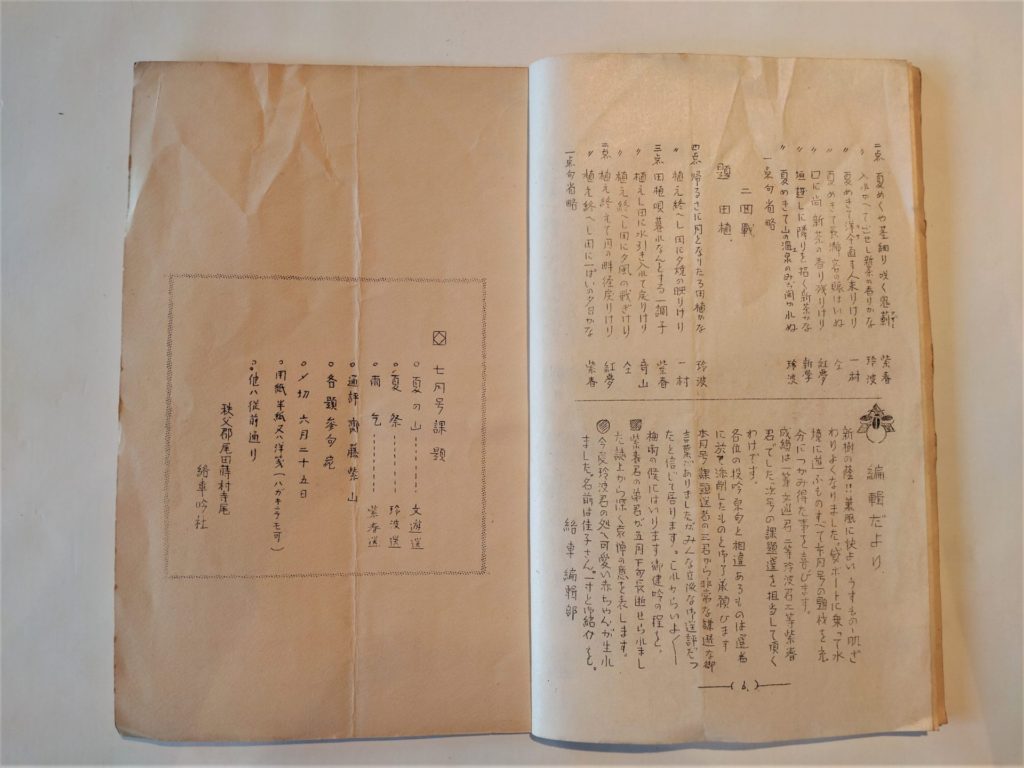 二点 夏めくや茎細り咲く 紫春
〃 入れかへて出せし新茶の香りかな 玲波
〃 夏めきて洋傘直す人来りけり 一村
〃 夏めきて長海 仝
〃 口に尚新茶の香り残りけり 紅夢
〃 垣越しに隣りを招く新茶かな 新学
〃 夏めきて山の温泉のみぢ開かれぬ 玲波
一点句省略
二回戦
題 田植、
四点 帰るさに月となりたる田植かな 玲波
〃 植え終へし田に夕焼の映りけり 一村
三点 田植唄暮れなんとする一調子 紫春
〃 植えし田に水引き入れて戻りけり 奇山
〃 植え終へし田に夕風の戦ぎけり 仝
二点 植え終えて月の畔径戻りけり 紅夢
〃 植え終へし田に一ぱいの夕日かな 紫春
一点句省略
編輯だより
新樹の蔭に薫風に快よいうすもの一肌ざ
わりよくなりました。貸ボートに乗って水
境に遊ぶものすべて本月号の題材を充
分につかみ得た事を喜びます。
成績は一等文遊君二等玲波君三等紫春
君でした。次号の課題選を担当して頂く
わけです。
各位の投吟原句と相違あるものは選者
に於て添削したものと御了承願ひます
本月号課題選者の三君から非常な謙遜な御
言葉がありましたがみんな立派な御選評だつ
たと信じて居ります。これからいよ〱
梅雨の候にはいります御健吟の程を。
紫春君の弟君が五月下旬長逝せられまし
た誌上から深く哀悼の意を表します。
今度玲波君の処へ可愛い赤ちゃんが生れ
ました。名前は佳子さん。一寸と御紹介を。
絵車編輯部
(6.)
七月号課題
○夏の山……… 文遊選
○夏祭……… 玲波選
○雨乞……… 紫春選
○通評 齋藤紫山
○各題参句宛
○〆切 六月二十五日
○用紙半紙又ハ洋箋(ハガキニテモ可)
○他ハ従前通り
秩父郡尾田蒔村寺尾
絵車吟社